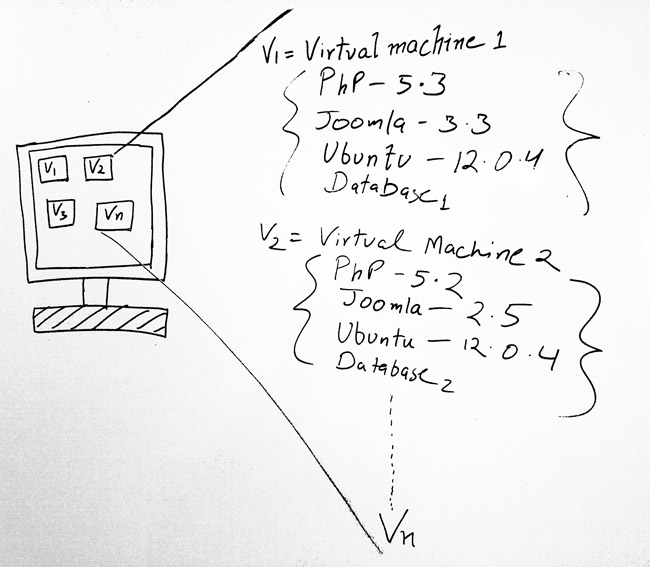 V1 = Virtual machine 1
PhP - 5.3
Joomla - 3.3
Ubuntu - 12.0.4
Database1
V1 V2
V3 Vn
V2 = Virtual Machine 2
PhP - 5.2
Joomla - 2.5
Ubuntu - 12.0.4
Database2
Vn